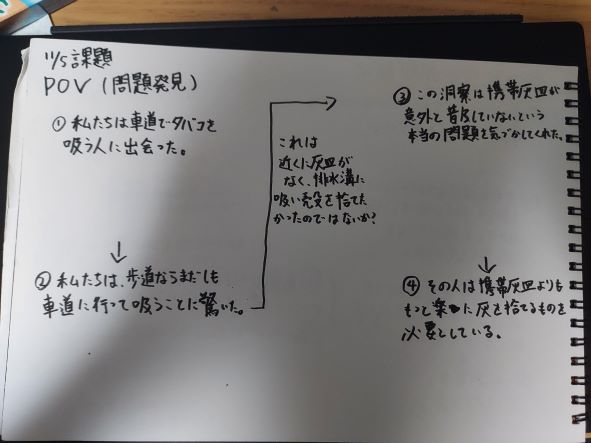 11/5 課題
POV (問題発見)
① 私たちは車道でタバコを
吸う人に出会った。
↓
② 私たちは、歩道ならまだしも
車道に行って吸うことに驚いた。
これは
近くに灰皿が
なく、排水溝に
吸い殻を捨てた
かったのではないか?
③ この洞察は携帯灰皿が
意外と普及していないという
本当の問題を気づかしてくれた。
↓
④ その人は携帯灰皿よりも
もっと楽に灰を捨てるものを
必要としている。